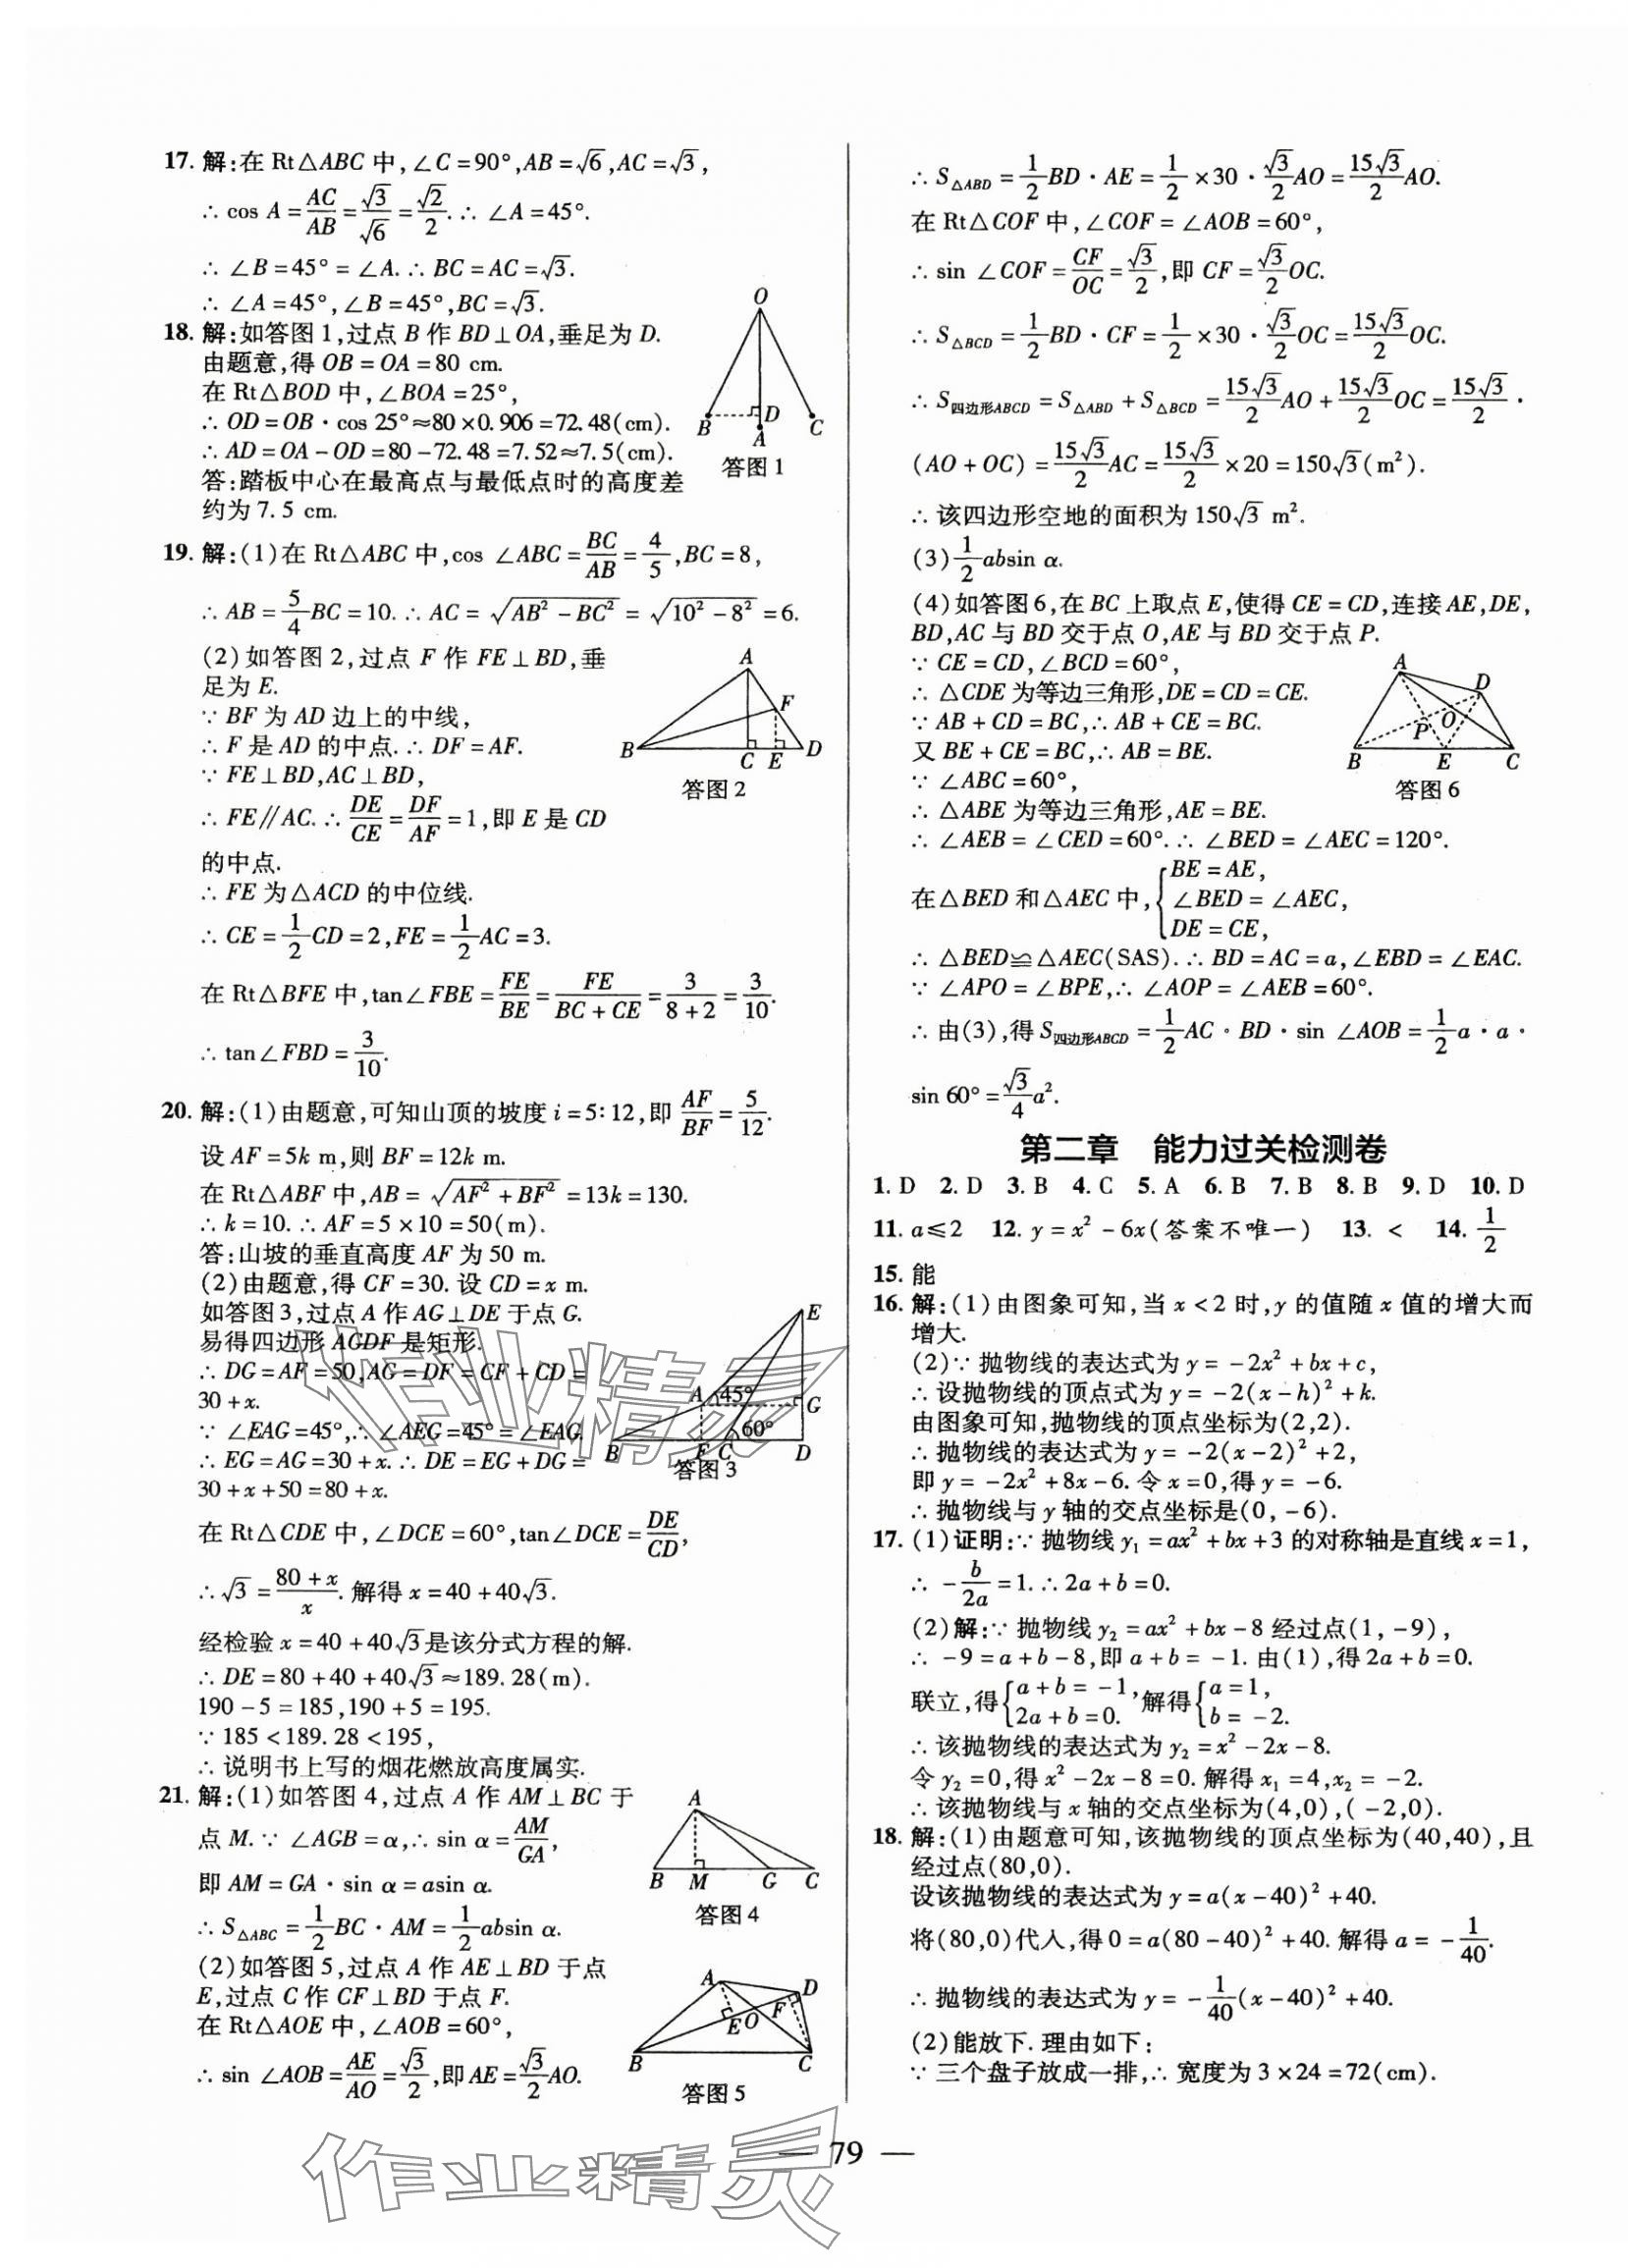 17. 解:在 Rt△ABC 中,∠C=90°,AB=√6,AC=√3,
∴ cos A=AC/AB=√3/√6=√2/2.∴ ∠A=45°.
∴ ∠B=45°=∠A.∴ BC=AC=√3.
∴ ∠A=45°,∠B=45°,BC=√3.
18. 解:如答图1,过点 B 作 BD⊥OA,垂足为 D.
由题意,得 OB=OA=80 cm.
在 Rt△BOD 中,∠BOA=25°,
∴ OD=OB·cos 25°≈80×0.906=72.48(cm).
∴ AD=OA-OD=80-72.48=7.52≈7.5(cm).
答:踏板中心在最高点与最低点时的高度差
约为 7.5 cm.
O
B
D
A
C
答图1
19. 解:(1)在 Rt△ABC 中,cos ∠ABC=BC/AB=4/5,BC=8,
∴ AB=5/4BC=10.∴ AC=√(AB²-BC²)=√(10²-8²)=6.
(2)如答图2,过点 F 作 FE⊥BD,垂
足为 E.
∵ BF 为 AD 边上的中线,
∴ F 是 AD 的中点.∴ DF=AF.
∵ FE⊥BD,AC⊥BD,
∴ FE∥AC.∴ DE/CE=DF/AF=1,即 E 是 CD
的中点.
∴ FE 为△ACD 的中位线.
∴ CE=1/2CD=2,FE=1/2AC=3.
在 Rt△BFE 中,tan∠FBE=FE/BE=FE/(BC+CE)=3/(8+2)=3/10.
∴ tan∠FBD=3/10.
A
F
B
C
E
D
答图2
20. 解:(1)由题意,可知山顶的坡度 i=5∶12,即 AF/BF=5/12.
设 AF=5k m,则 BF=12k m.
在 Rt△ABF 中,AB=√(AF²+BF²)=13k=130.
∴ k=10.∴ AF=5×10=50(m).
答:山坡的垂直高度 AF 为 50 m.
(2)由题意,得 CF=30.设 CD=x m.
如答图3,过点 A 作 AG⊥DE 于点 G.
易得四边形 AGDF 是矩形.
∴ DG=AF=50,AG=DF=CF+CD=
30+x.
∵ ∠EAG=45°,∴ ∠AEG=45°=∠EAG.
∴ EG=AG=30+x.∴ DE=EG+DG=
30+x+50=80+x.
在 Rt△CDE 中,∠DCE=60°,tan∠DCE=DE/CD,
∴√3=(80+x)/x.解得 x=40+40√3.
经检验 x=40+40√3是该分式方程的解.
∴ DE=80+40+40√3≈189.28(m).
190-5=185,190+5=195.
∵ 185<189.28<195,
∴ 说明书上写的烟花燃放高度属实.
E
A
45°
G
60°
B
F
C
D
答图3
21. 解:(1)如答图4,过点 A 作 AM⊥BC 于
点 M.∵ ∠AGB=α,∴ sin α=AM/GA,
即 AM=GA·sin α=asin α.
∴ S△ABC=1/2BC·AM=1/2absin α.
(2)如答图5,过点 A 作 AE⊥BD 于点
E,过点 C 作 CF⊥BD 于点 F.
在 Rt△AOE 中,∠AOB=60°,
∴ sin ∠AOB=AE/AO=√3/2,即 AE=√3/2AO.
A
B
M
G
C
答图4
A
D
E
O
F
B
C
答图5
∴ S△ABD=1/2BD·AE=1/2×30·√3/2AO=15√3/2AO.
在 Rt△COF 中,∠COF=∠AOB=60°,
∴ sin ∠COF=CF/OC=√3/2,即 CF=√3/2OC.
∴ S△BCD=1/2BD·CF=1/2×30·√3/2OC=15√3/2OC.
∴ S四边形ABCD=S△ABD+S△BCD=15√3/2AO+15√3/2OC=15√3/2·
(AO+OC)=15√3/2AC=15√3/2×20=150√3(m²).
∴ 该四边形空地的面积为 150√3 m².
(3)1/2absin α.
(4)如答图6,在 BC 上取点 E,使得 CE=CD,连接 AE,DE,
BD,AC 与 BD 交于点 O,AE 与 BD 交于点 P.
∵ CE=CD,∠BCD=60°,
∴ △CDE 为等边三角形,DE=CD=CE.
∵ AB+CD=BC,∴ AB+CE=BC.
又 BE+CE=BC,∴ AB=BE.
∵ ∠ABC=60°,
∴ △ABE 为等边三角形,AE=BE.
∴ ∠AEB=∠CED=60°.∴ ∠BED=∠AEC=120°.
在△BED 和△AEC 中,{BE=AE,
∠BED=∠AEC,
DE=CE,
∴ △BED≌△AEC(SAS).∴ BD=AC=a,∠EBD=∠EAC.
∵ ∠APO=∠BPE,∴ ∠AOP=∠AEB=60°.
∴ 由(3),得 S四边形ABCD=1/2AC·BD·sin ∠AOB=1/2a·a·
sin 60°=√3/4a².
A
D
P
O
B
E
C
答图6
第二章 能力过关检测卷
1. D 2. D 3. B 4. C 5. A 6. B 7. B 8. B 9. D 10. D
11. a≤2 12. y=x²-6x(答案不唯一) 13. < 14. 1/2
15. 能
16. 解:(1)由图象可知,当 x<2 时,y 的值随 x 值的增大而
增大.
(2)∵ 抛物线的表达式为 y=-2x²+bx+c,
∴ 设抛物线的顶点式为 y=-2(x-h)²+k.
由图象可知,抛物线的顶点坐标为(2,2).
∴ 抛物线的表达式为 y=-2(x-2)²+2,
即 y=-2x²+8x-6.令 x=0,得 y=-6.
∴ 抛物线与 y 轴的交点坐标是(0,-6).
17. (1)证明:∵ 抛物线 y₁=ax²+bx+3 的对称轴是直线 x=1,
∴ -b/2a=1.∴ 2a+b=0.
(2)解:∵ 抛物线 y₂=ax²+bx-8 经过点(1,-9),
∴ -9=a+b-8,即 a+b=-1.由(1),得 2a+b=0.
联立,得{a+b=-1, 2a+b=0.解得{a=1, b=-2.
∴ 该抛物线的表达式为 y₂=x²-2x-8.
令 y₂=0,得 x²-2x-8=0.解得 x₁=4,x₂=-2.
∴ 该抛物线与 x 轴的交点坐标为(4,0),(-2,0).
18. 解:(1)由题意可知,该抛物线的顶点坐标为(40,40),且
经过点(80,0).
设该抛物线的表达式为 y=a(x-40)²+40.
将(80,0)代入,得 0=a(80-40)²+40.解得 a=-1/40.
∴ 抛物线的表达式为 y=-1/40(x-40)²+40.
(2)能放下.理由如下:
∵ 三个盘子放成一排,∴ 宽度为 3×24=72(cm).
— 79 —
作业精灵
作业精灵